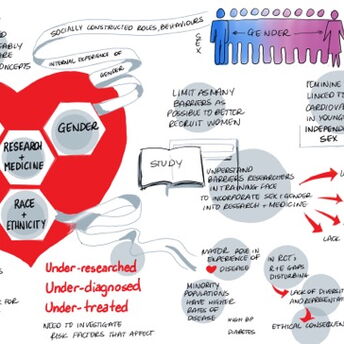 SOCIALLY CONSTRUCTED ROLES, BEHAVIOURS
INTERNAL EXPERIENCE OF
GENDER
SEX
GENDER
ARE
CONCEPTS
GENDER
RESEARCH
+
MEDICINE
RACE
+
ETHNICITY
LIMIT AS MANY
BARRIERS AS
POSSIBLE TO BETTER
RECRUIT WOMEN
FEMININE
LINKED TO
CARDIOVA
IN YOUNG
INDEPEND
SEX
STUDY
UNDERSTAND
BARRIERS RESEARCHERS
IN TRAINING FACE
TO INCORPORATE SEX + GENDER
INTO RESEARCH + MEDICINE
LACK
Under-researched
Under-diagnosed
Under-treated
NEED TO INVESTIGATE
RISK FACTORS THAT AFFECT
FOR
MAJOR ROLE IN
EXPERIENCE OF
DISEASE
MINORITY
POPULATIONS
HAVE HIGHER
RATES OF
DISEASE
HIGH BP
DIABETES
IN RCT,
R+E GAPS
DISTURBING
LACK OF DIVERSI
AND REPRESENTAT
ETHICAL CONSEQUEN